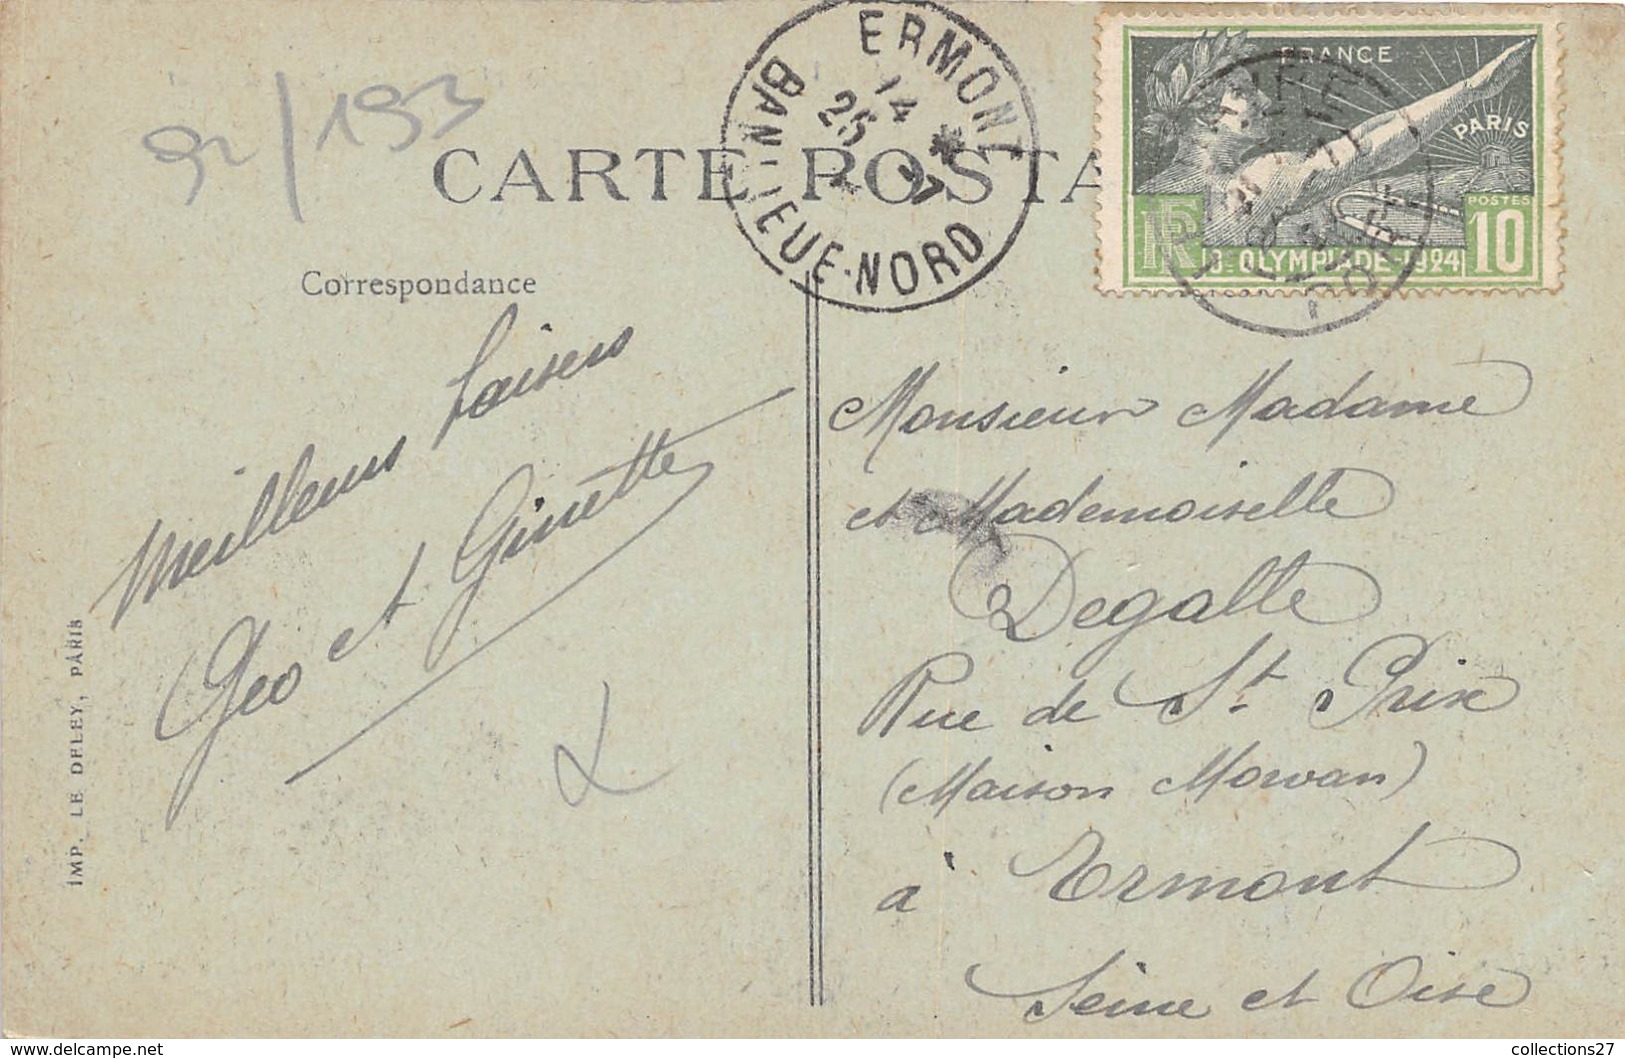 92/193
CARTE POSTA
ERMONT
14
25
BANLIEUE-NORD
FRANCE
PARIS
POSTES
10
RF
8E OLYMPIADE-1924
Correspondance
Meilleurs baisers
Geo et Ginette
IMP. LE DELEY, PARIS
Monsieur Madame
et Mademoiselle
Degatte
Rue de St. Prix
(Maison Morvan)
à Ermont
Seine et Oise
collections27